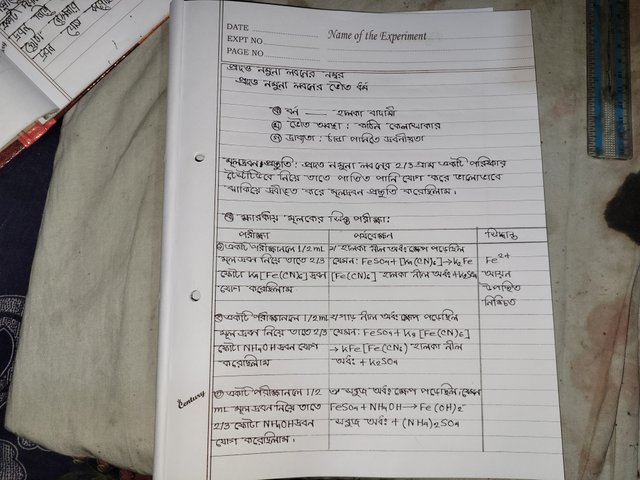 DATE
EXPT NO
PAGE NO
Name of the Experiment
প্রদত্ত নমুনা লবনের নম্বর
প্রদত্ত নমুনা লবনের ভৌত ধর্ম
বর্ন — হালকা বাদামী
ভৌত অবস্থা : কঠিন কেলাসাকার
দ্রাব্যতা : ঠান্ডা পানিতে দ্রবনীয়তা
মূলদ্রবন প্রস্তুতি : প্রদত্ত নমুনা লবনের 2/3 গ্রাম একটি পরিষ্কার
টেস্টটিউবে নিয়ে তাতে পাতিত পানি যোগ করে ভালোভাবে
ঝাকিয়ে দ্রবীভূত করে মূলদ্রবন প্রস্তুতি করেছিলাম।
ক্ষারকীয় মূলকের সিক্ত পরীক্ষা:
পরীক্ষা
পর্যবেক্ষন
সিদ্ধান্ত
একটি পরীক্ষানলে 1/2 mL
মূল দ্রবন নিয়ে তাতে 2/3
ফোটা K4[Fe(CN)6] দ্রবন
যোগ করেছিলাম
হালকা নীল অধঃক্ষেপ পড়েছিল
যেমন: FeSO4 + [K4(CN)6] → K2Fe
[Fe(CN)6] হালকা নীল অধঃ + K2SO4
Fe2+
আয়ন
উপস্থিত
নিশ্চিত
একটি পরীক্ষানলে 1/2 mL
মূল দ্রবন নিয়ে তাতে 2/3
ফোটা NH4OH দ্রবন যোগ
করেছিলাম
গাঢ় নীল অধঃক্ষেপ পড়েছিল
যেমন: FeSO4 + K3 [Fe(CN)6]
→ KFe[Fe(CN)6) হালকা নীল
অধঃ + K2SO4
একটি পরীক্ষানলে 1/2
mL মূল দ্রবন নিয়ে তাতে
2/3 ফোটা NH4OH দ্রবন
যোগ করেছিলাম।
সবুজ অধঃক্ষেপ পড়েছিল যেমন
FeSO4 + NH4OH → Fe(OH)2
সবুজ অধঃ + (NH4)2SO4
Century